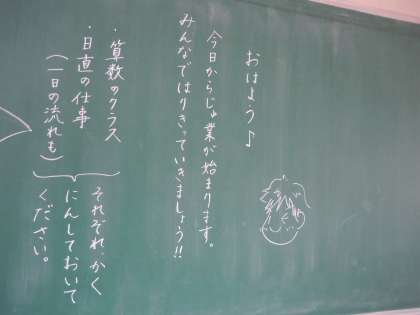 おはよう♪
今日からじゅ業が始まります。
みんなではりきっていきましょう!!
・算数のクラス
・日直の仕事
(一日の流れも)
それぞれ、かく
にんしておいて
ください。